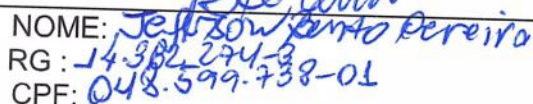 NOME: Jefferson Bento Pereira
RG: 14.382.274-3
CPF: 048.599.738-01